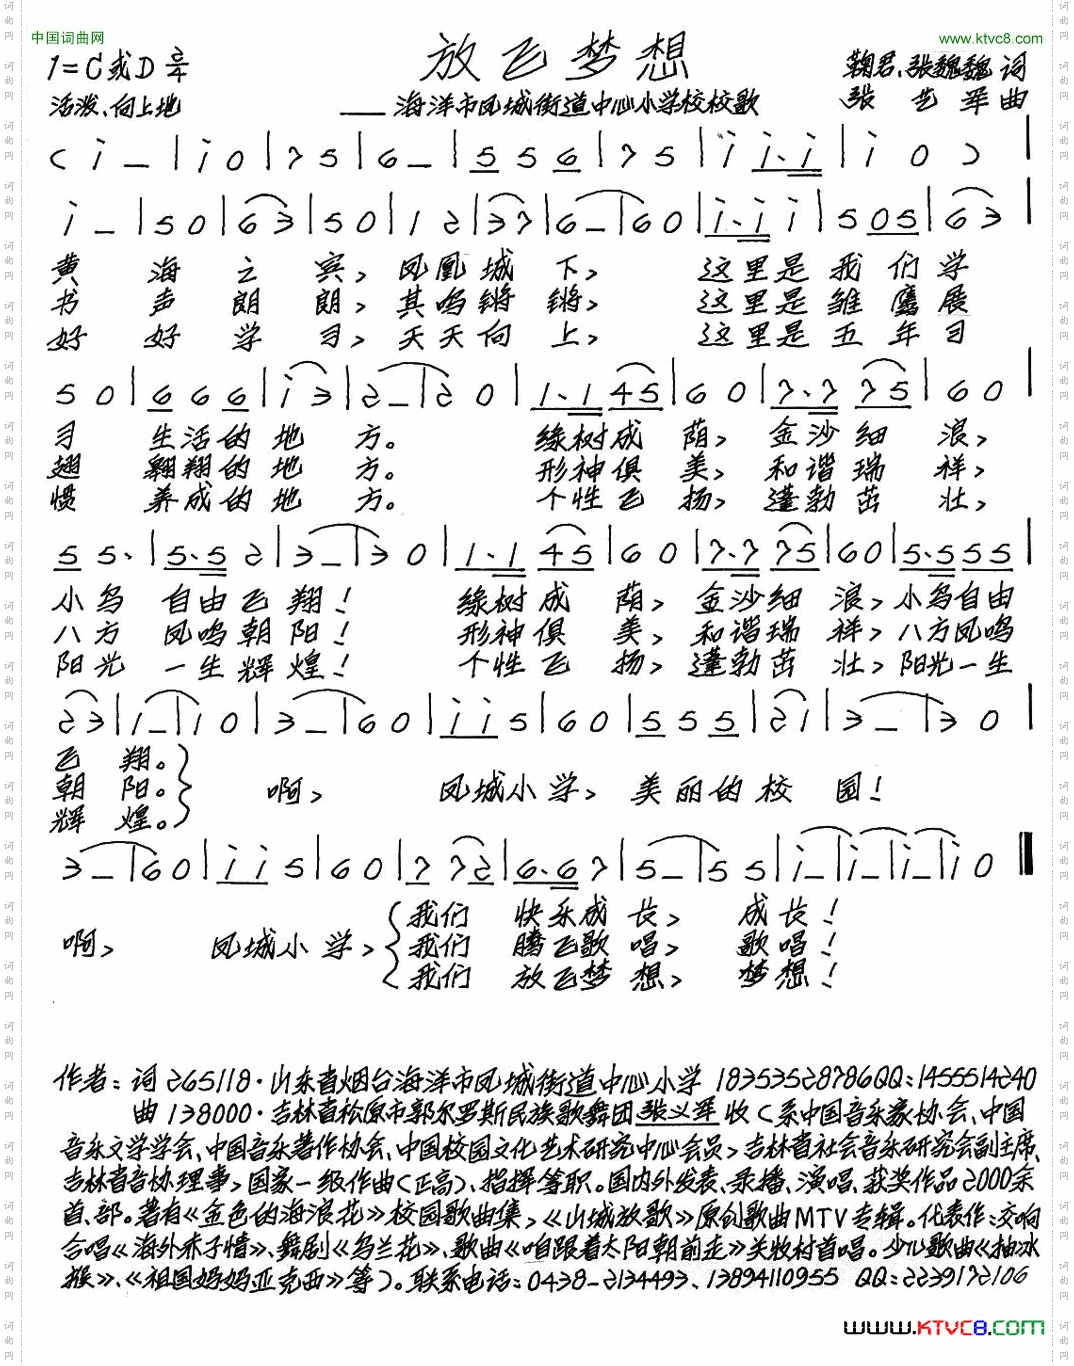 中国词曲网
www.ktvc8.com
放飞梦想
1=C或D 2/4
鞠君、张魏魏 词
活泼、向上地
——海洋市凤城街道中心小学校校歌
张艺军曲
( i – | i 0 | 7 5 | 6 – | 5 5 6 | 7 5 | i i. i | i 0 ) |
i – | 5 0 | 6 3 | 5 0 | 1 2 | 3 7 | 6 – | 6 0 | i. i i | 5 0 5 | 6 3 |
黄 海 之 宾, 凤凰城 下, 这里是我们学
书 声 朗 朗, 其鸣锵 锵, 这里是雏鹰展
好 好 学 习, 天天向 上, 这里是五年习
5 0 | 6 6 6 | i 3 | 2 – | 2 0 | 1. 1 4 5 | 6 0 | 7. 7 7 5 | 6 0 |
习 生活的地 方。 缘树成 荫, 金沙细 浪,
翅 翱翔的地 方。 形神俱 美, 和谐瑞 祥,
惯 养成的地 方。 个性飞 扬, 蓬勃茁 壮,
5 5. | 5. 5 2 | 3 – | 3 0 | 1. 1 4 5 | 6 0 | 7. 7 7 5 | 6 0 | 5. 5 5 5 |
小鸟 自由飞翔! 缘树成 荫, 金沙细 浪, 小鸟自由
八方 凤鸣朝阳! 形神俱 美, 和谐瑞 祥, 八方凤鸣
阳光 一生辉煌! 个性飞 扬, 蓬勃茁 壮, 阳光一生
2 3 | 1 – | 1 0 | 3 – | 6 0 | i i 5 | 6 0 | 5 5 5 | 2 1 | 3 – | 3 0 |
飞 翔。
朝 阳。 啊, 凤城小学, 美丽的校 园!
辉 煌。
3 – | 6 0 | i i 5 | 6 0 | 7 7 2 | 6. 6 7 | 5 – | 5 5 | i – | i – | i – | i 0
我们 快乐成 长, 成长!
啊, 凤城小 学, 我们 腾飞歌 唱, 歌唱!
我们 放飞梦 想, 梦想!
作者:词265118·山东省烟台海洋市凤城街道中心小学 18353528786QQ:1455514240
曲138000·吉林省松原市郭尔罗斯民族歌舞团张义军收(系中国音乐家协会、中国
音乐文学学会、中国音乐著作协会、中国校园文化艺术研究中心会员,吉林省社会音乐研究会副主席、
吉林省音协理事,国家一级作曲(正高)、指挥等职。国内外发表、录播、演唱、获奖作品2000余
首、部。著有《金色的海浪花》校园歌曲集,《山城放歌》原创歌曲MTV专辑。代表作:交响
合唱《海外赤子情》、舞剧《乌兰花》、歌曲《咱跟着太阳朝前走》关牧村首唱。少儿歌曲《抽冰
猴》、《祖国妈妈亚克西》等)。联系电话:0438-2134493、13894110955 QQ:2239172106
www.KTVC8.com